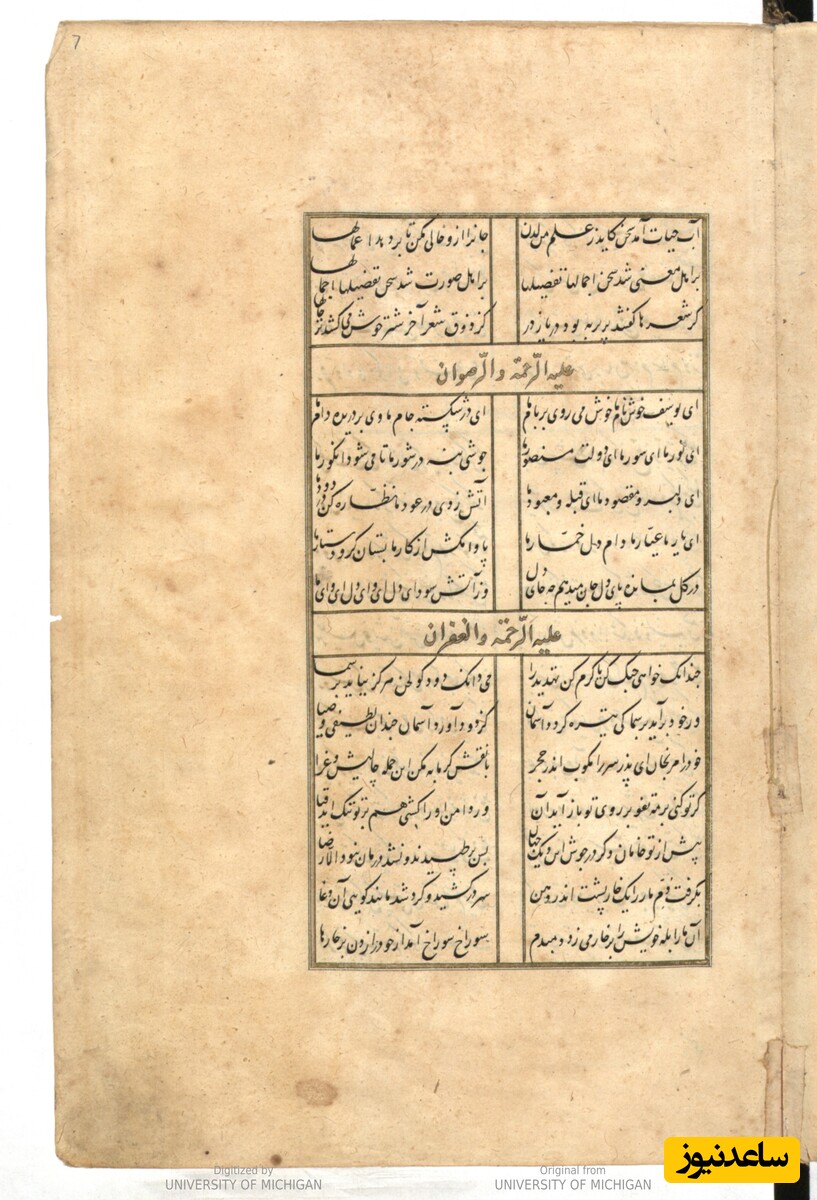 7
آب حیات آمد سخن کاید ز علم من لدن جانرا ازو خالی مکن تا بردهد اعمالها
بر اهل معنی شد سخن اجمالها تفصیلها بر اهل صورت شد سخن تفصیلها اجمالها
گر شعرها گفتند پر پر به بود دریا ز در کز ذوق شعر آخر شتر خوش می کشد ترحالها
علیه الرحمة والرضوان
ای یوسف خوش نام ما خوش می روی بر بام ما ای درشکسته جام ما وی بردریده دام ما
ای نور ما ای سور ما ای دولت منصور ما جوشی بنه در شور ما تا می شود انگور ما
ای دلبر و مقصود ما ای قبله و معبود ما آتش زدی در عود ما نظاره کن در دود ما
ای یار ما عیار ما دام دل خمار ما پا وامکش از کار ما بستان گرو دستار ما
در گل بمانده پای دل جان میدهم چه جای دل وز آتش سودای دل ای وای دل ای وای ما
علیه الرحمة والغفران
چندانک خواهی جنگ کن یا گرم کن تهدید را می دانک دود گولخن هرگز نیاید بر سما
ور خود برآید بر سما کی تیره گردد آسمان کز دود آورد آسمان چندان لطیفی و ضیا
خود را مرنجان ای پدر سر را مکوب اندر حجر با نقش گرمابه مکن این جمله چالیش و غزا
گر تو کنی بر مه تفو بر روی تو باز آید آن ور دامن او را کشی هم بر تو تنگ آید قبا
پیش از تو خامان دگر در جوش این دیک جهان بس برطپیدند و نشد درمان نبود الا رضا
بگرفت دم مار را یک خارپشت اندر دهن سر درکشید و گرد شد مانند گویی آن دغا
آن مار ابله خویش را بر خار می زد دمبدم سوراخ سوراخ آمد از خود زدن بر خارها
Digitized by
UNIVERSITY OF MICHIGAN
Original from
UNIVERSITY OF MICHIGAN
ساعدنیوز